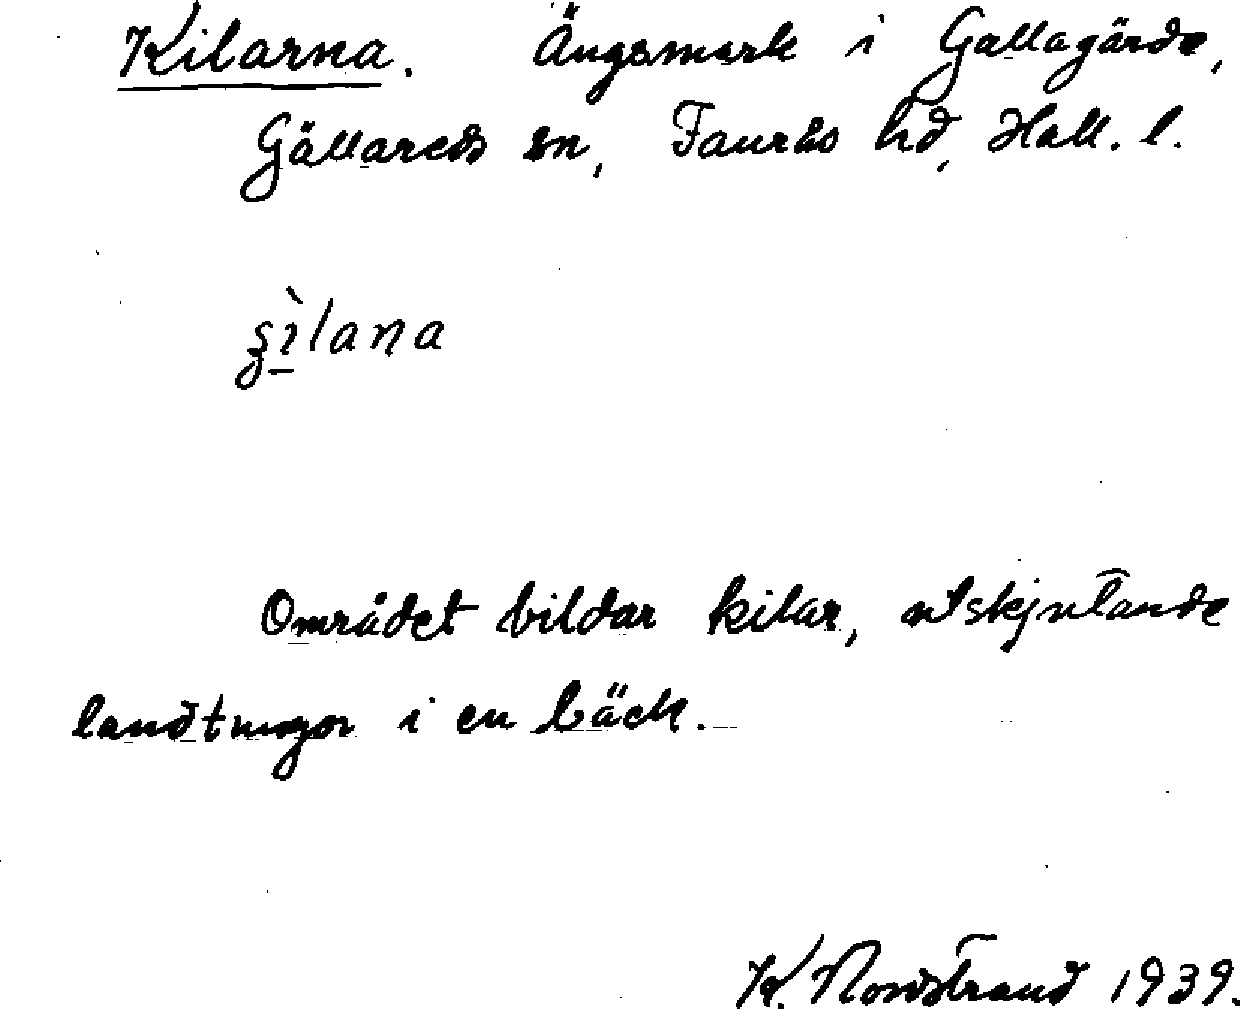 Kilarna. Ängsmark i Gallagärde,
Gällareds sn, Faurås hd, Hall. l.
ʂìlaɳa
Området bildar kilar, utskjutande
landtungor i en bäck.
K. Nordstrand 1939.